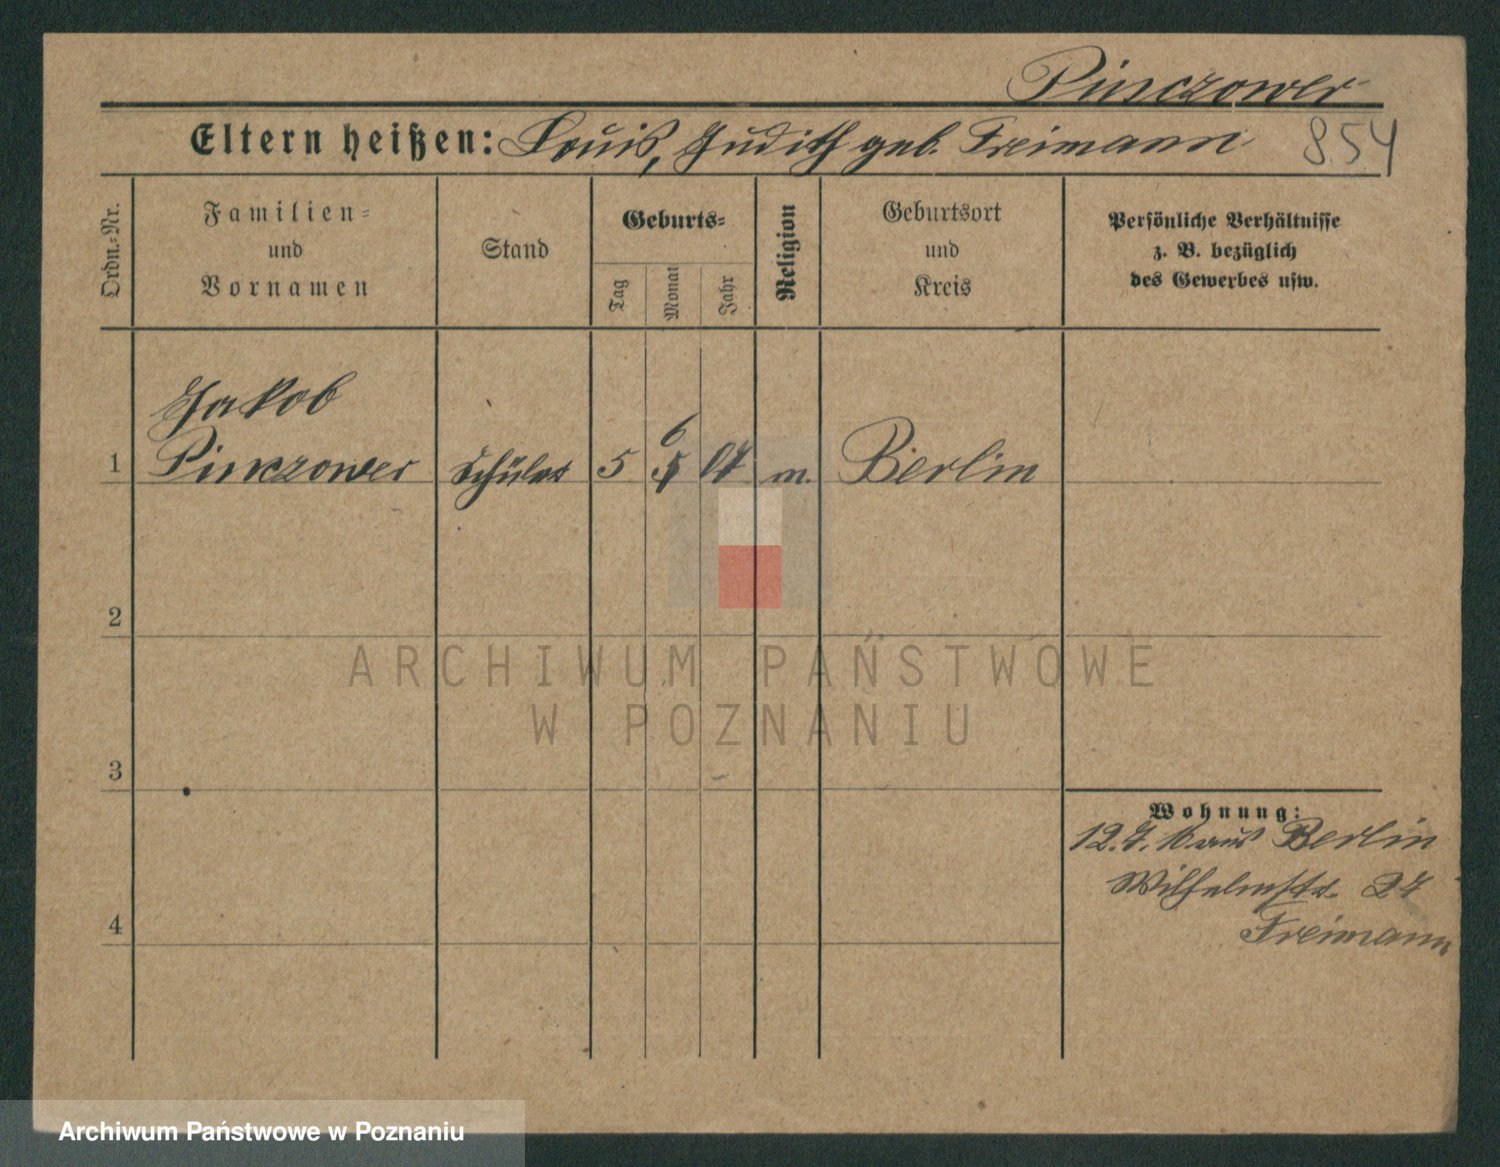 Pinczower
Eltern heißen: Louis, Judith geb. Freimann
854
Ordn.=Nr.
Familien=
und
Vornamen
Stand
Geburts=
Tag
Monat
Jahr
Religion
Geburtsort
und
Kreis
Persönliche Verhältnisse
z. B. bezüglich
des Gewerbes usw.
Jakob
6
1 Pinczower Schüler 5 5 07 m. Berlin
2
ARCHIWUM PAŃSTWOWE
W POZNANIU
3
Wohnung:
12.7. 16 aus Berlin
Wilhelmstr. 27
Freimann
4
Archiwum Państwowe w Poznaniu